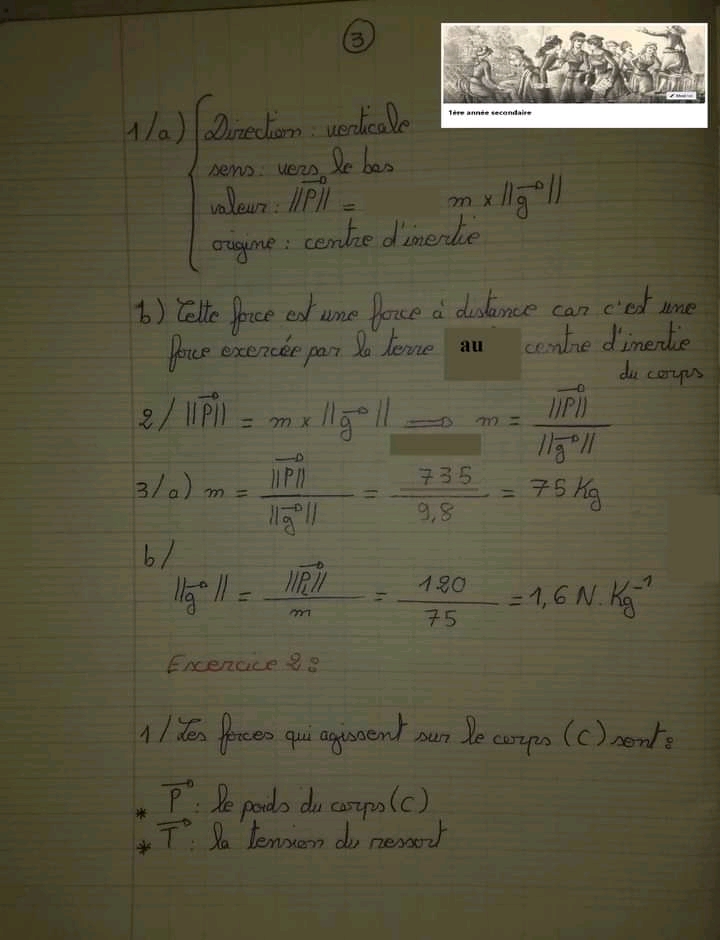 3
1ére année secondaire
1/a) Direction : verticale
sens : vers le bas
valeur : ||P⃗|| = m x ||g⃗||
origine : centre d'inertie
b) Cette force est une force à distance car c'est une
force exercée par la terre au centre d'inertie
du corps
2/ ||P⃗|| = m x ||g⃗|| ⟹ m = ||P⃗|| / ||g⃗||
3/a) m = ||P⃗|| / ||g⃗|| = 735 / 9,8 = 75 Kg
b/
||g⃗|| = ||P⃗L|| / m = 120 / 75 = 1,6 N.Kg⁻¹
Exercice 2 :
1/ Les forces qui agissent sur le corps (C) sont :
* P⃗ : le poids du corps (C)
* T⃗ : la tension du ressort